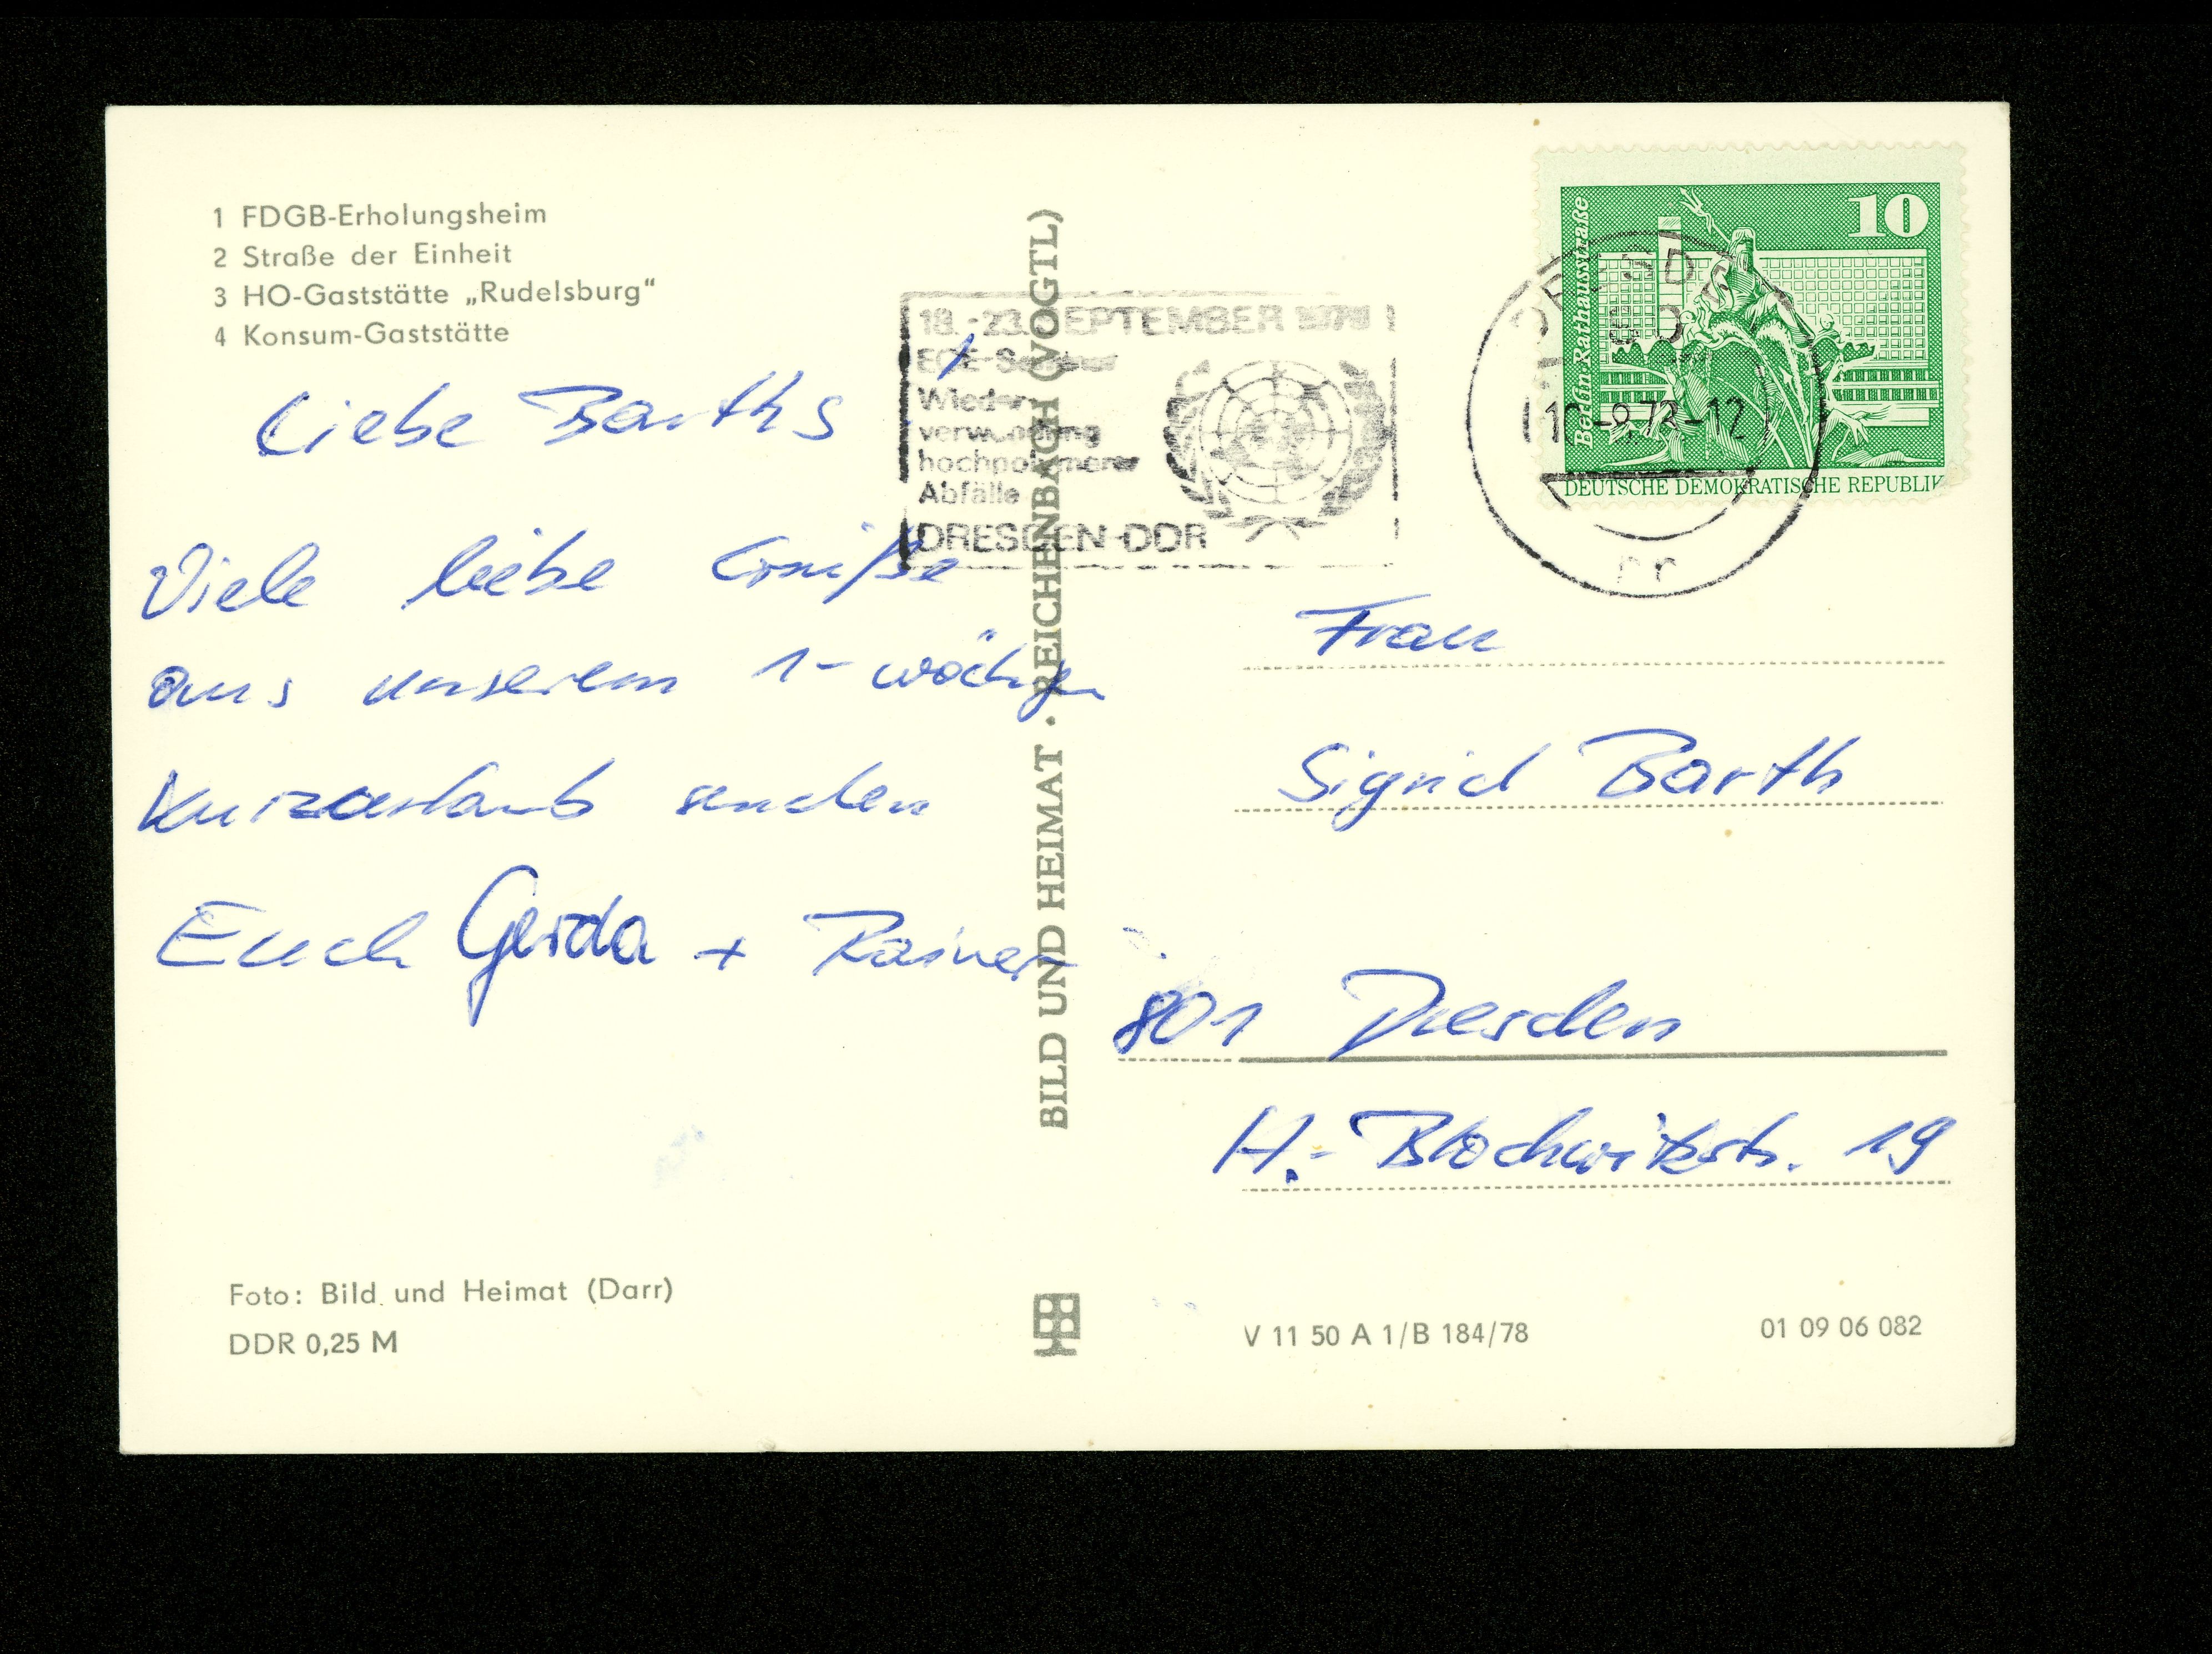 1 FDGB-Erholungsheim
2 Straße der Einheit
3 HO-Gaststätte „Rudelsburg“
4 Konsum-Gaststätte
Liebe Barths !
Viele liebe Grüße
aus unserem 1-wöchigen
Kurzurlaub senden
Euch Gerda + Rainer
Foto: Bild und Heimat (Darr)
DDR 0,25 M
BILD UND HEIMAT · REICHENBACH (VOGTL)
18.-23. SEPTEMBER
Wieder-
verwendung
Abfälle
DRESDEN-DDR
10
Berlin·Rathausstraße
DEUTSCHE DEMOKRATISCHE REPUBLIK
Frau
Sigrid Barth
801 Dresden
H.-Blochwitzstr. 19
V 11 50 A 1/B 184/78
01 09 06 082